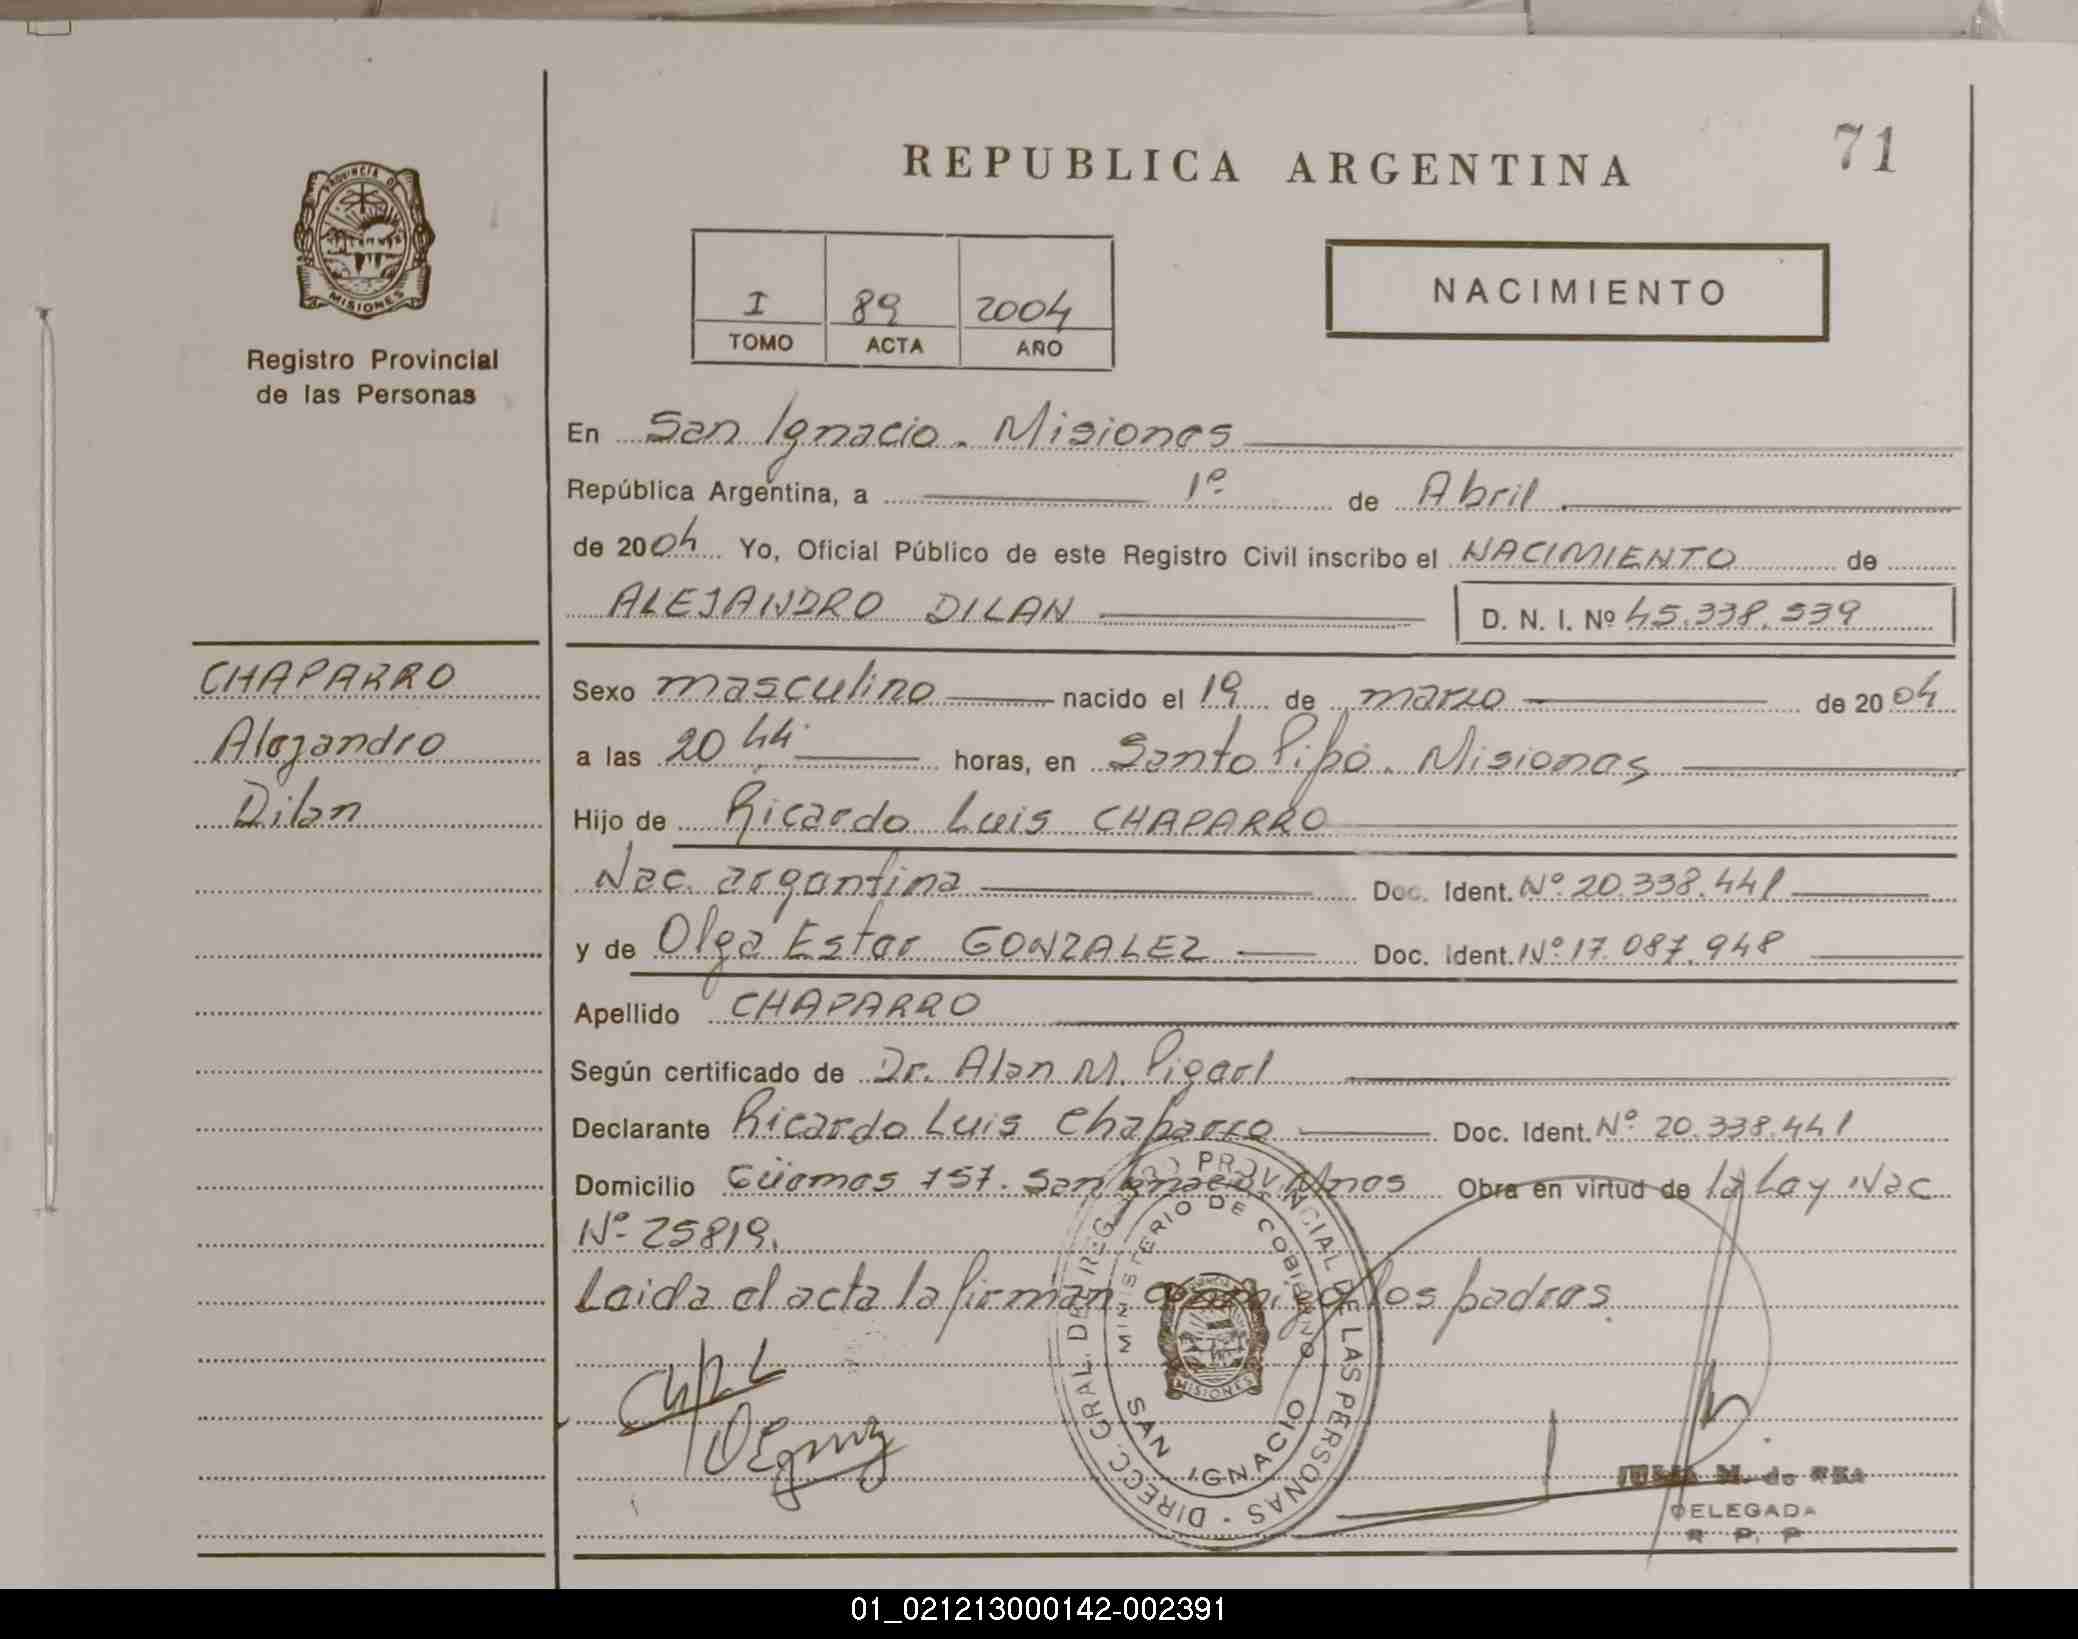 71
REPUBLICA ARGENTINA
PROVINCIA DE
MISIONES
Registro Provincial
de las Personas
I 89 2004
TOMO ACTA AÑO
NACIMIENTO
En San Ignacio. Misiones
República Argentina, a 1º de Abril
de 2004 Yo, Oficial Público de este Registro Civil inscribo el NACIMIENTO de
ALEJANDRO DILAN D. N. I. Nº 45.338.539
CHAPARRO
Alejandro
Dilan
Sexo masculino nacido el 19 de marzo de 2004
a las 20 44 horas, en Santo Pipó. Misiones
Hijo de Ricardo Luis CHAPARRO
Nac. argentina Doc. Ident. Nº 20.338.441
y de Olga Ester GONZALEZ Doc. Ident. Nº 17.087.948
Apellido CHAPARRO
Según certificado de Dr. Alan M.
Declarante Ricardo Luis Chaparro Doc. Ident. Nº 20.338.441
Domicilio Güemes 157. San Ignacio. Mnes Obra en virtud de la Ley Nac
Nº 25819.
Leida el acta la firman conmigo los padres.
DIRECC. GRAL. DEL REGISTRO PROVINCIAL DE LAS PERSONAS
MINISTERIO DE GOBIERNO
MISIONES
SAN IGNACIO
M. de
DELEGADA
R. P. P
01_021213000142-002391